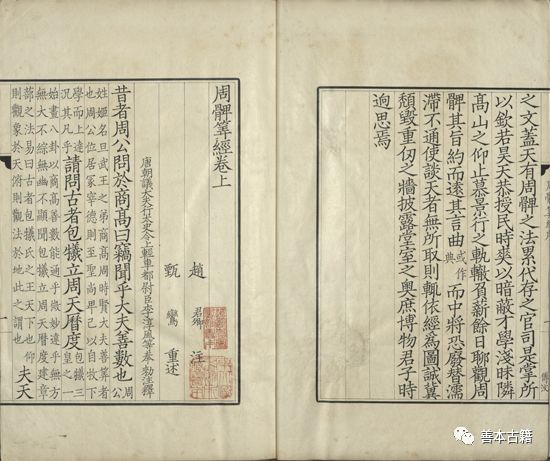 之文蓋天有周髀之法累代存之官司是掌所
以欽若昊天恭授民時爽以暗蔽才學淺昧隣
髙山之仰止慕景行之軌轍負薪餘日聊觀周
髀其旨約而遠其言曲或作典而中將恐廢替濡
滯不通使談天者無所取則輒依經為圖誠冀
頹毀重仞之牆披露堂室之奧庶博物君子時
逈思焉
周髀筭經卷上
趙君卿 注
甄鸞 重述
唐朝議大夫行太史令上輕車都尉臣李淳風等奉 勑注釋
昔者周公問於商髙曰竊聞乎大夫善數也周公
姓姬名旦武王之弟商髙周時賢大夫善筭者
也周公位居冢宰德則至聖尚卑己以自牧下
學而上達況其凡乎請問古者包犧立周天曆度包犧三皇之一
始畫八卦以商髙善數能通乎微妙達乎無方
無大不綜無幽不顯聞包犧立周天曆度建章
蔀之法易曰古者包犧氏之王天下也仰
則觀象於天俯則觀法於地此之謂也夫天
善本古籍